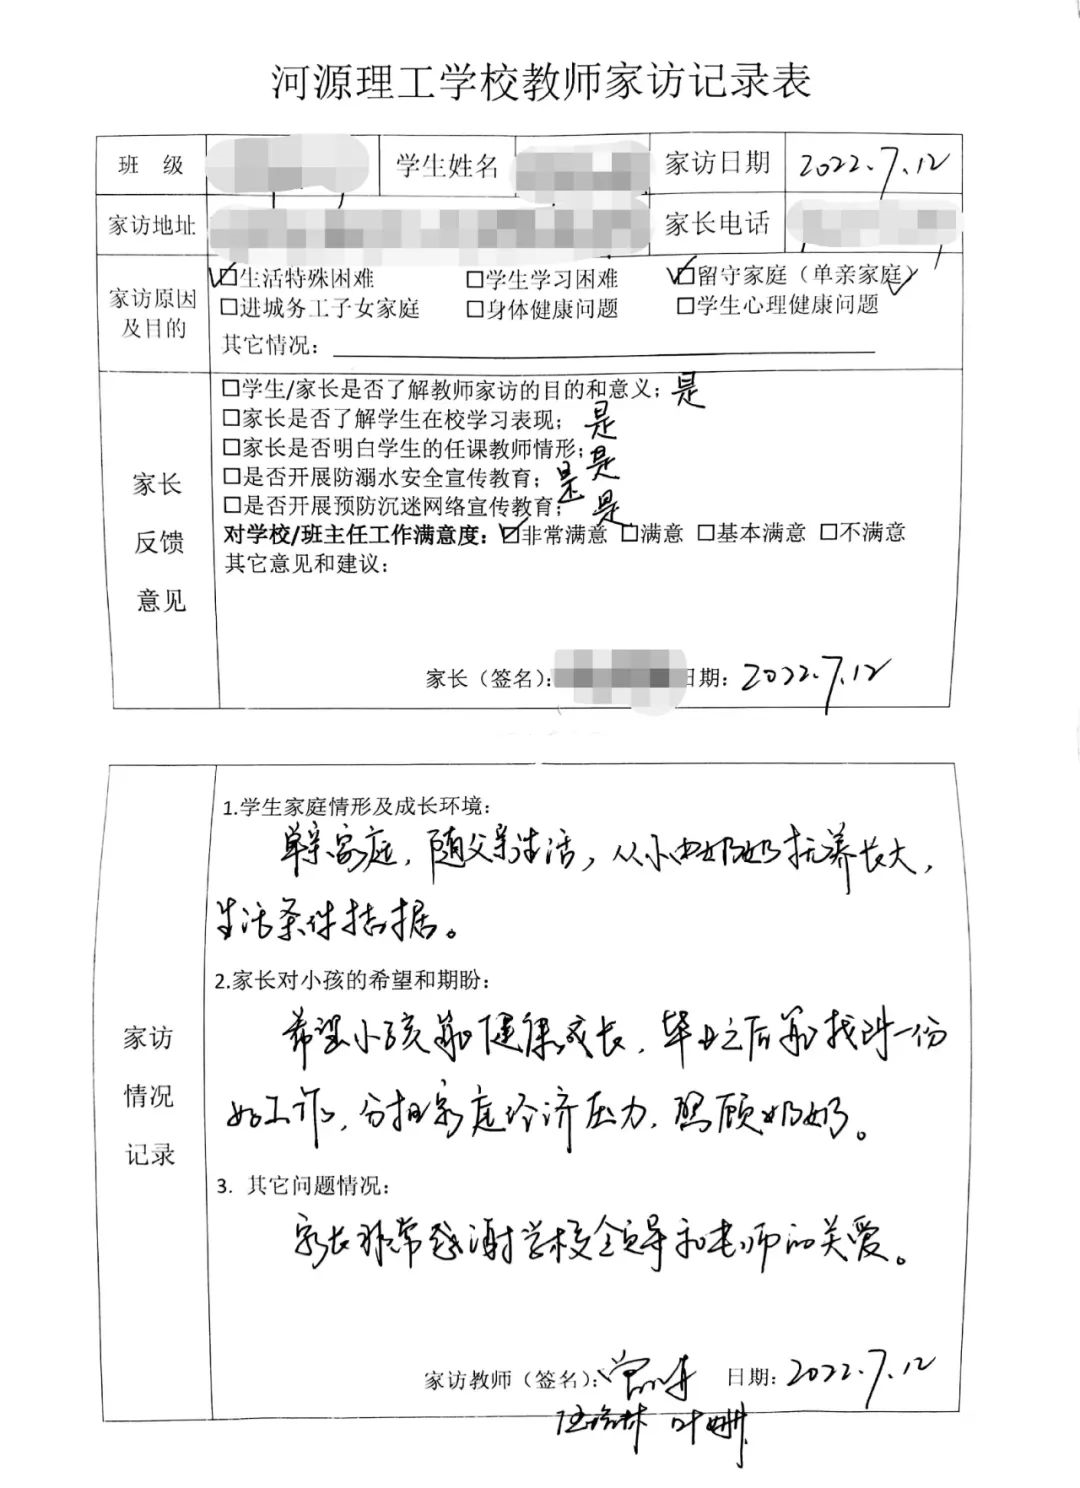 河源理工学校教师家访记录表
班 级 学生姓名 家访日期 2022.7.12
家访地址 家长电话
家访原因及目的
☑生活特殊困难 □学生学习困难 ☑留守家庭（单亲家庭）✓
□进城务工子女家庭 □身体健康问题 □学生心理健康问题
其它情况：
家长反馈意见
□学生/家长是否了解教师家访的目的和意义；是
□家长是否了解学生在校学习表现；是
□家长是否明白学生的任课教师情形；是
□是否开展防溺水安全宣传教育；是
□是否开展预防沉迷网络宣传教育；是
对学校/班主任工作满意度：☑非常满意 □满意 □基本满意 □不满意
其它意见和建议：
家长（签名）： 日期：2022.7.12
家访情况记录
1.学生家庭情形及成长环境：
单亲家庭，随父亲生活，从小由奶奶抚养长大，
生活条件拮据。
2.家长对小孩的希望和期盼：
希望小孩能健康成长，毕业之后能找到一份
好工作，分担家庭经济压力，照顾奶奶。
3. 其它问题情况：
家长非常感谢学校领导和老师的关爱。
家访教师（签名）： 日期：2022.7.12
叶姗